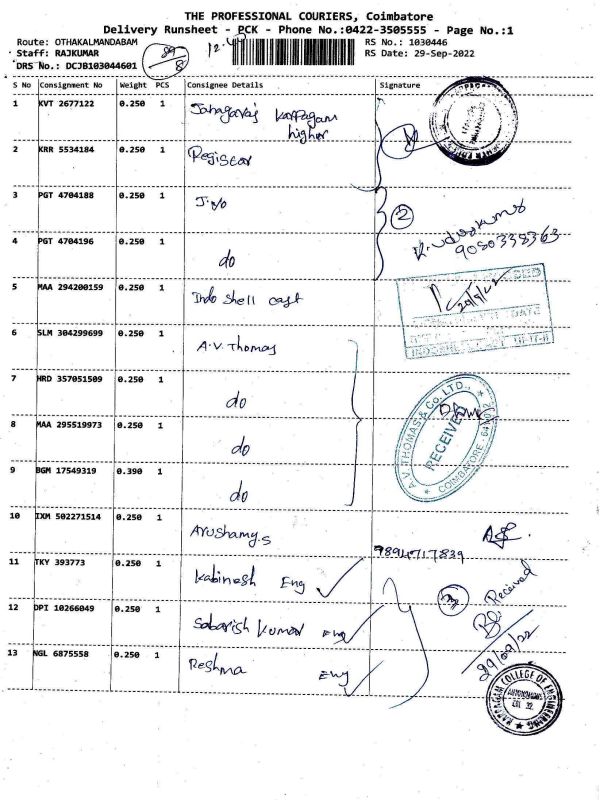 THE PROFESSIONAL COURIERS, Coimbatore
Delivery Runsheet - PCK - Phone No.:0422-3505555 - Page No.:1
Route: OTHAKALMANDABAM
RS No.: 1030446
Staff: RAJKUMAR
RS Date: 29-Sep-2022
DRS No.: DCJB103044601
S No Consignment No Weight PCS Consignee Details Signature
1 KVT 2677122 0.250 1 Karpagam
higher
2 KRR 5534184 0.250 1 Registrar
3 PGT 4704188 0.250 1
2
4 PGT 4704196 0.250 1 do
9080338363
5 MAA 294200159 0.250 1 Indo Shell cast
6 SLM 304299699 0.250 1 A.V. Thomas
7 HRD 357051509 0.250 1 do
A.V. THOMAS & Co. LTD., COIMBATORE
RECEIVED
8 MAA 295519973 0.250 1 do
9 BGM 17549319 0.390 1 do
10 IXM 502271514 0.250 1 Arushamy.S
9894717839
11 TKY 393773 0.250 1 Kabinesh Eng
3 Received
12 DPI 10266049 0.250 1 Sabarish Kumar Eng
29/09/22
13 NGL 6875558 0.250 1 Reshma Eng
KARPAGAM COLLEGE OF ENGINEERING
AUTONOMOUS